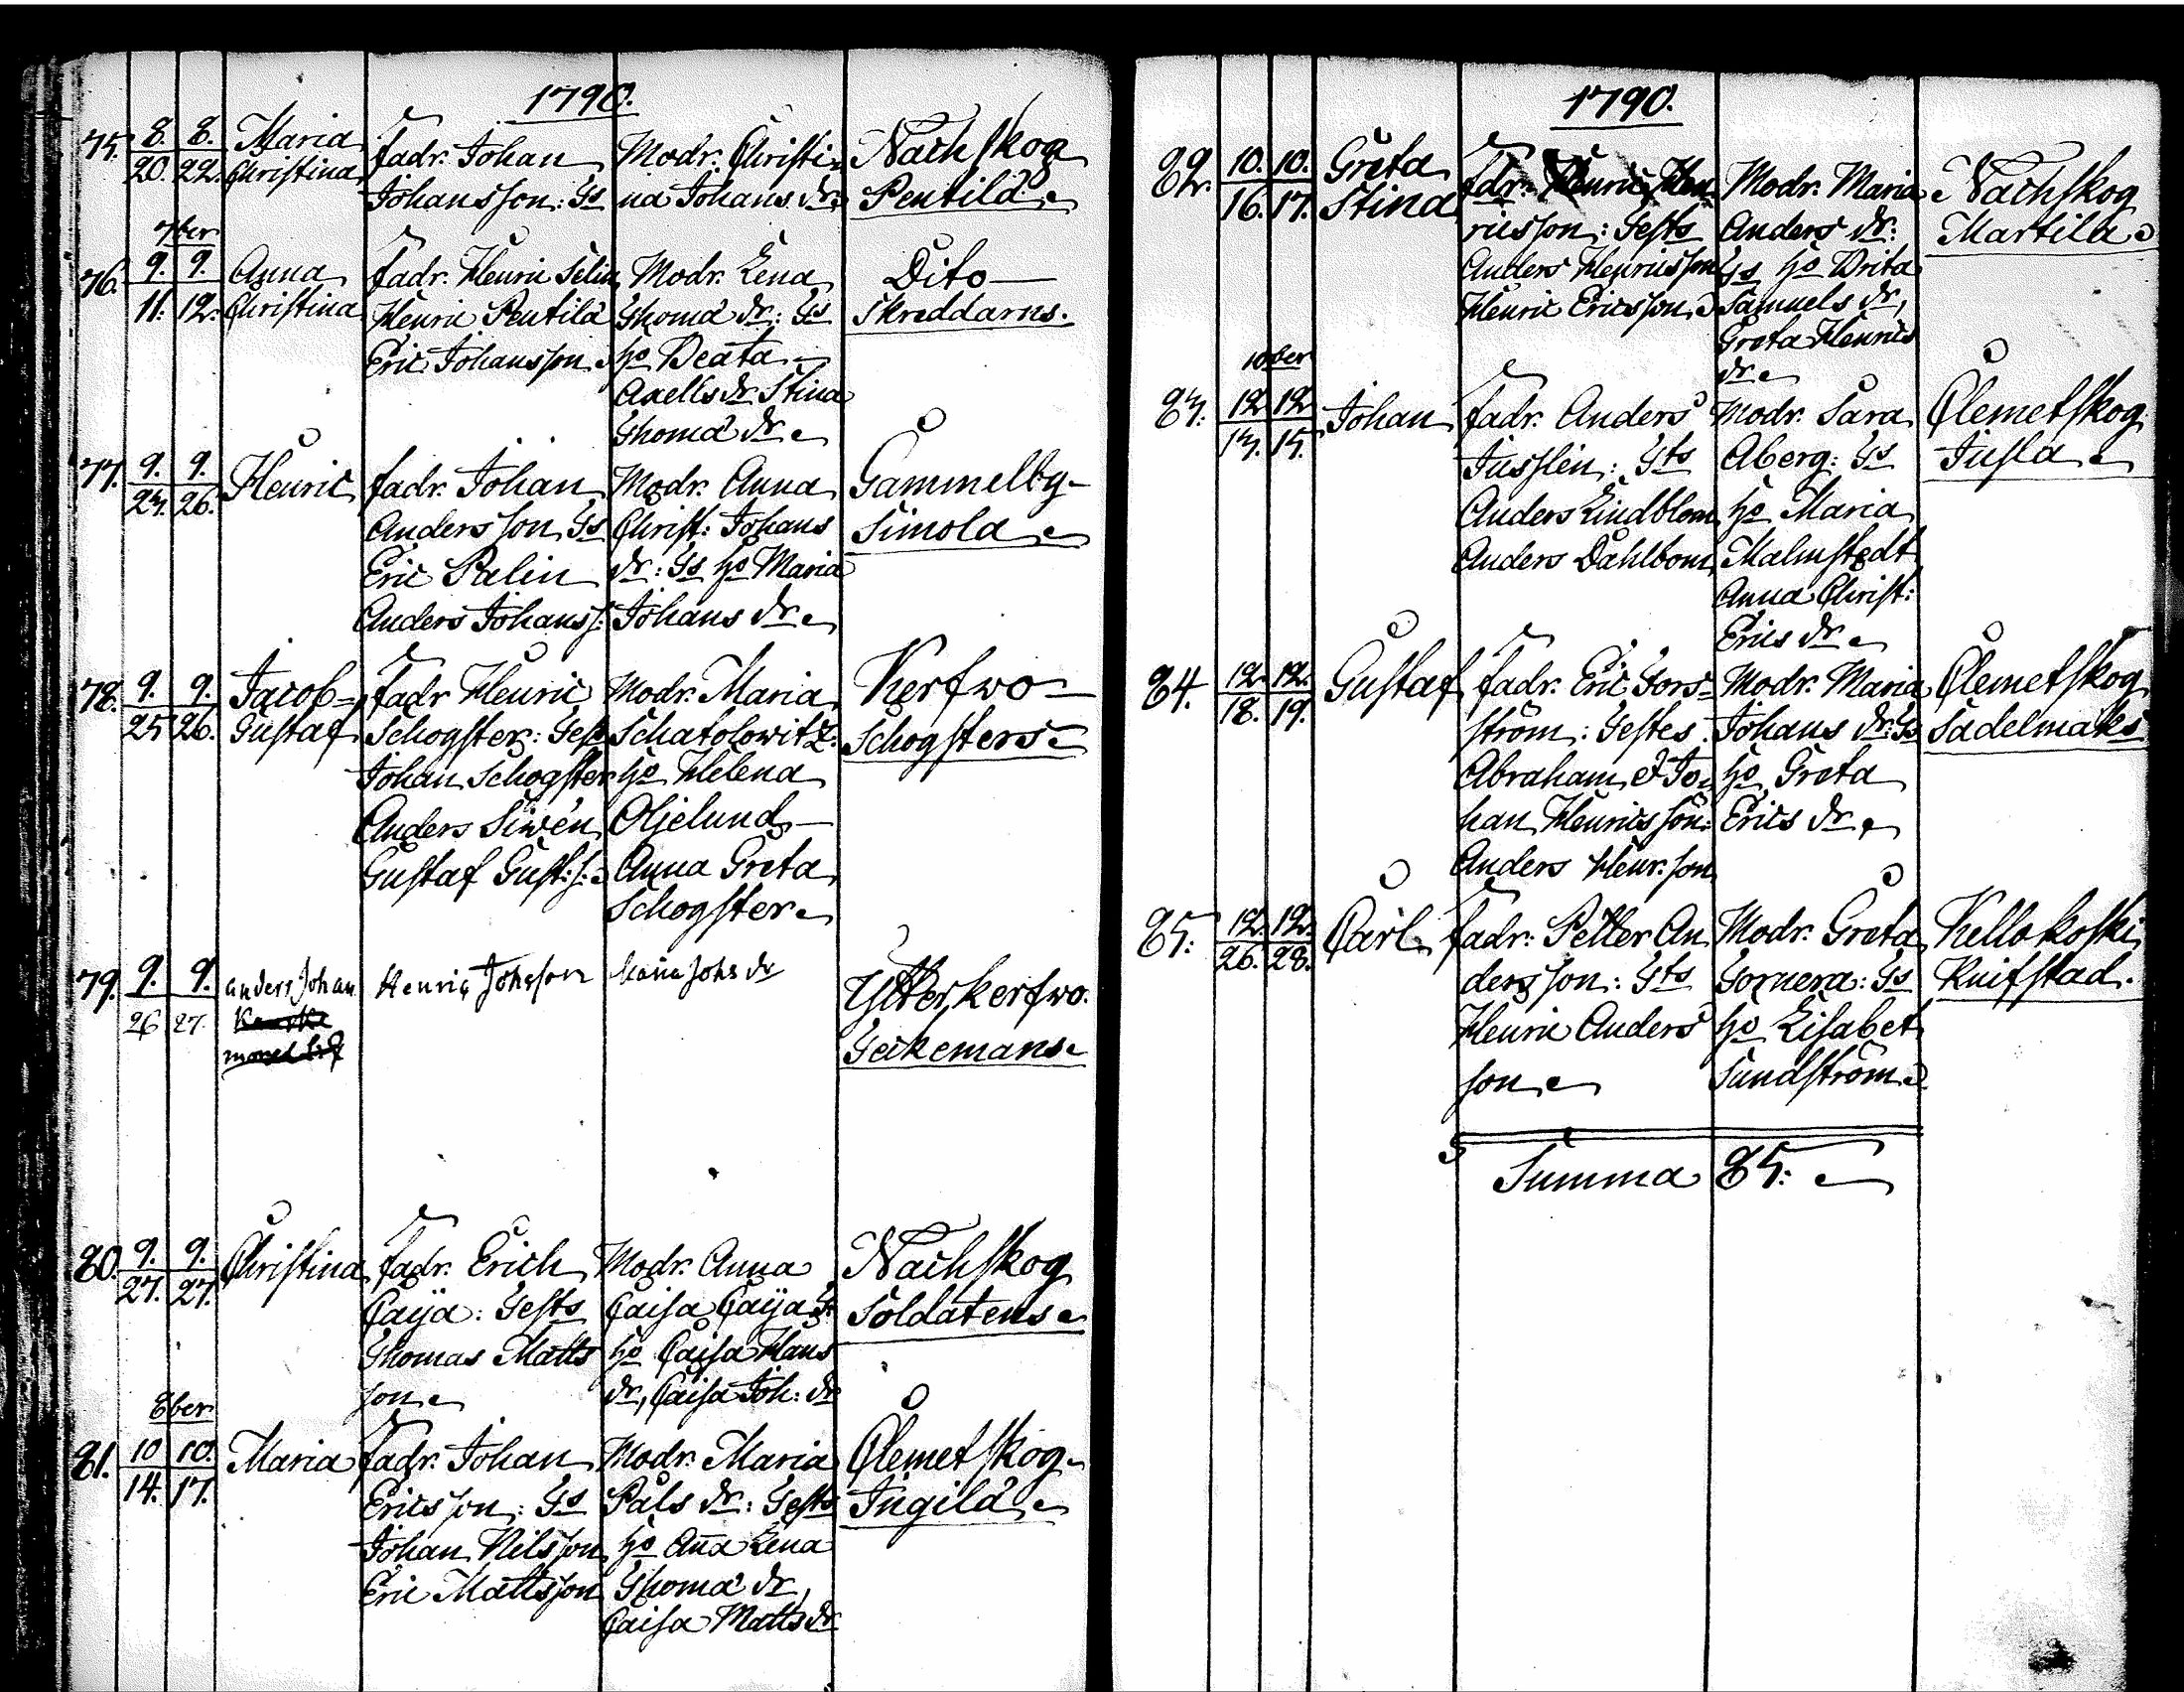 1790.
75. 8. 8. Maria Fadr. Johan Modr. Christi= Nachskog
20. 22. Christina Johansson: Gs na Johans dr: Pentilä
7ber
76. 9. 9. Anna Fadr. Henric Selin Modr. Lena Dito
11. 12. Christina Henric Pentilä Thoma dr: Gs Skreddarns.
Eric Johansson ho Beata
Axells dr Stina
Thoma dr
77. 9. 9. Henric Fadr. Johan Modr. Anna Gammelby
23. 26. Andersson Gs Christ: Johans Simola
Eric Palin dr: Gs ho Maria
Anders Johanss: Johans dr
78. 9. 9. Jacob= Fadr Henric Modr. Maria Kerfwo
25 26. Gustaf Schogster: Gest Schatolowitz: Schogsters
Johan Schogster ho Helena
Anders Siwén Oljelund
Gustaf Gust:s: Anna Greta
Schogster
79. 9. 9. Anders Johan Henric Johsson Maria Johs dr Ytterkerfwo.
26 27. Geckemans
80. 9. 9. Christina Fadr. Erich Modr. Anna Nachskog
27. 27. Caija: Gests Caisa Caija G: Soldatens
Thomas Matts ho Caisa Hans
son dr, Caisa Joh: dr
8ber
81. 10 10. Maria Fadr. Johan Modr. Maria Clemetskog
14. 17. Ericsson: Gs Påls dr: Gests Ingilä
Johan Nilsson ho Aña Lena
Eric Mattsson Thoma dr,
Caisa Matts dr
1790.
82. 10. 10. Greta Fdr: Henric Hen Modr. Maria Nachskog
16. 17. Stina ricsson: Gests Anders dr: Martila
Anders Henricsson Gs ho Brita
Henric Ericsson Samuels dr,
Greta Henrics
dr
10ber
83. 12 12 Johan Fadr. Anders Modr. Sara Clemetskog
13. 15. Jusslin: Gts Aberg: Gs Jusla
Anders Lindblom ho Maria
Anders Dahlbom Malmstedt
Anna Christ:
Erics dr
84. 12. 12. Gustaf Fadr. Eric Fors= Modr. Maria Clemetskog
18. 19. ström: Gestes Johans dr: Gs Sadelmaks
Abraham & Jo= ho Greta
han Henricsson: Erics dr
Anders Henr. son
85. 12. 12. Carl Fadr: Petter An Modr. Greta Kellokoski
26. 28. dersson: Gts Gornera: Gs Knifstad.
Henric Anders ho Lisabet
son Sundström
Summa 85: